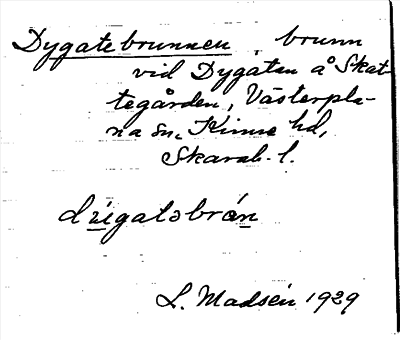 Dygatebrunnen, brunn
vid Dygatan å Skat-
tegården, Västerpla-
na sn, Kinne hd,
Skarab. l.
dýigatəbrán
L. Madsén 1929